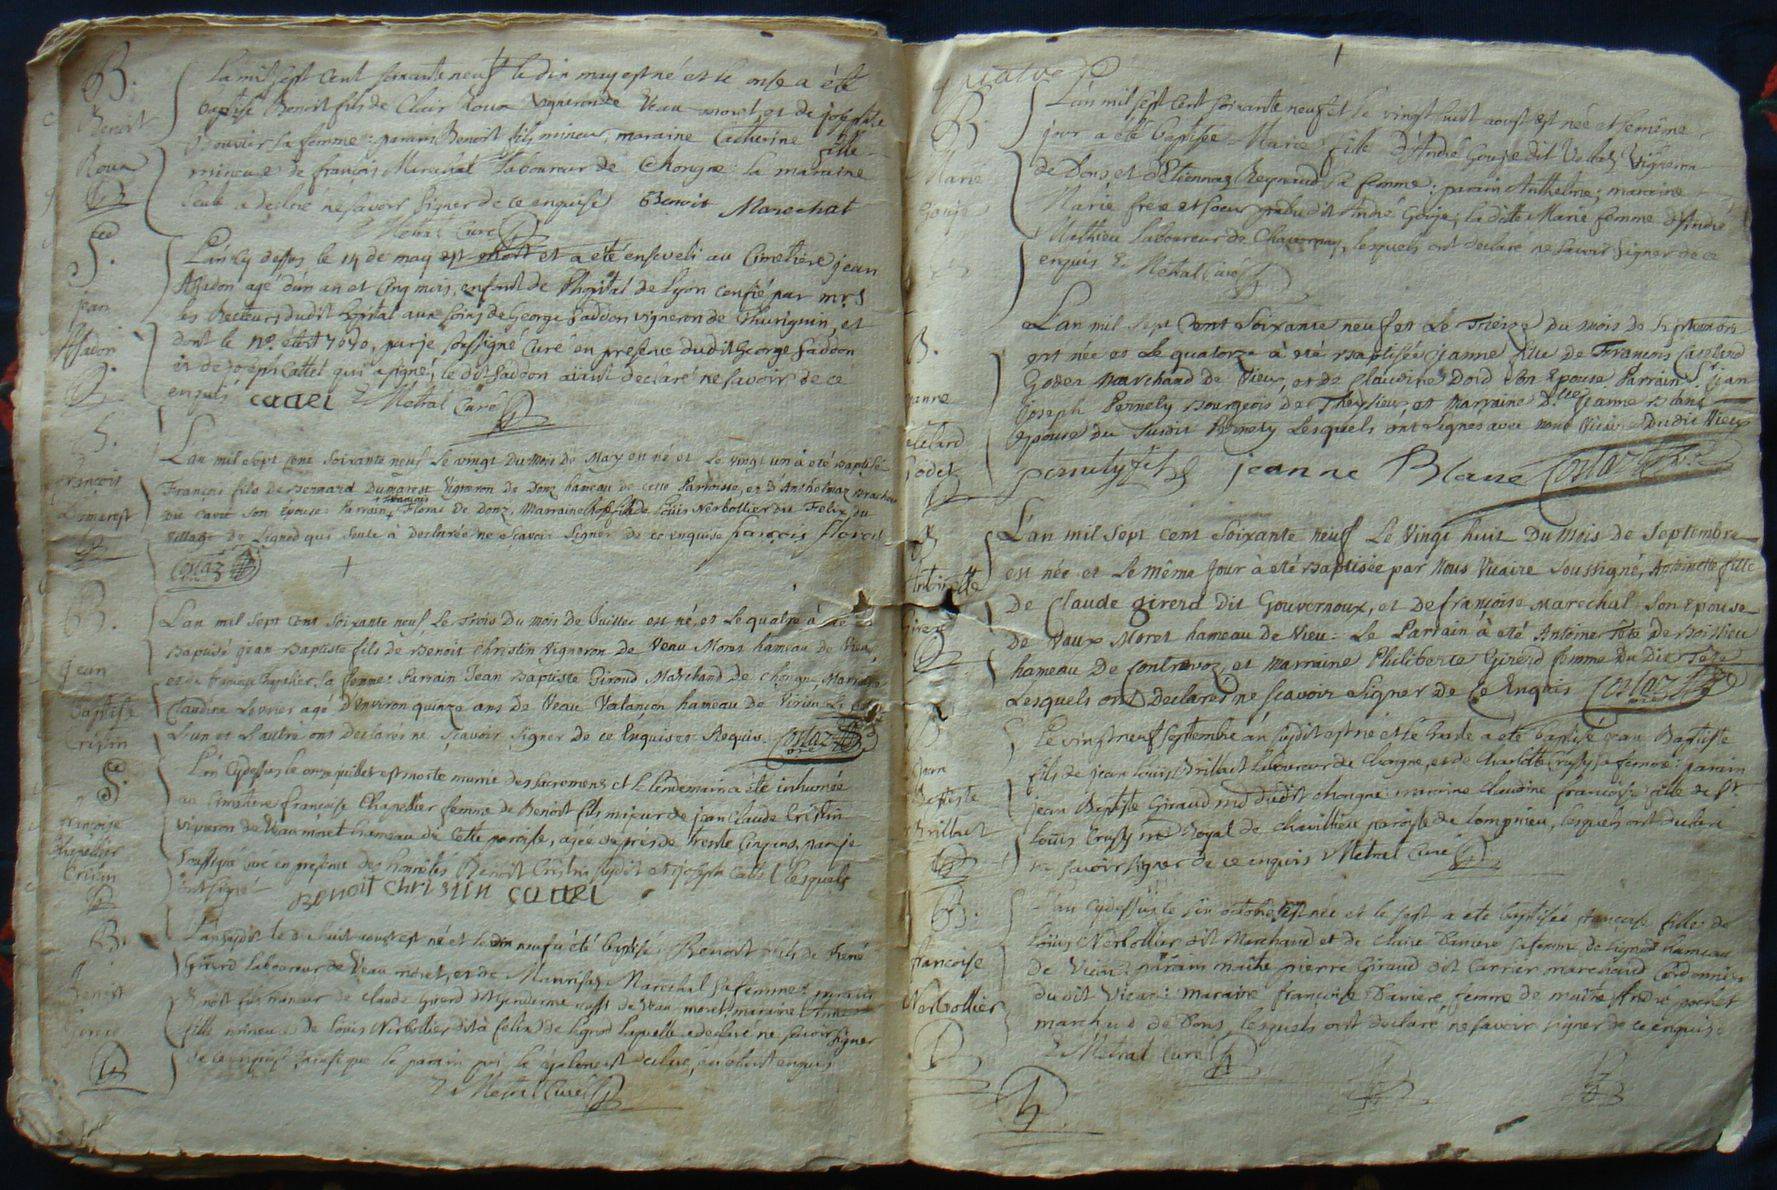 B.
Benoit
Roux
L'an mil sept cent soixante neuf le dix may est né et le onse a été
baptisé Benoit fils de Clair Roux vigneron de Veau moret, et de josephte
Bouvier sa femme : parain Benoit fils mineur, maraine Catherine fille
mineure de françois Marechal Laboureur de Chongne la maraine
seule a declaré ne savoir signer de ce enquise Benoit Marechal
Metral Curé
S.
jean
Assadon
L'an cy dessus le 14 de may est mort et a été enseveli au Cimetière jean
Assadon agé d'un an et cinq mois, enfant de l'hopital de Lyon confié par mrs
les Recteurs dudit hopital aux soins de George Saddon vigneron de Thurignin, et
dont le no. etoit 7070, par je soussigné Curé en presence dudit George Saddon
et de joseph Cattel qui a signé, le dit Saddon aiant declaré ne savoir de ce
enquis cattel Metral Curé
B.
françois
Dumarest
L'an mil sept cent soixante neuf Le vingt du mois de May est né et Le vingt un à eté Baptisé
François fils de Bernard Dumarest Vigneron de Donz hameau de cette Parroisse, et d'Anthelmaz
son Epouse Parrain françois Florel de Donz, Marraine fille de Louis Nerbollier dit Felix du
village de Lignod qui seule à declarée ne sçavoir signer de ce enquise françois florel
Costaz
B.
Jean
Baptiste
Cristin
L'an mil sept cent soixante neuf Le trois du mois de Juillet est né, et Le quatre à été
Baptisé Jean Baptiste fils de Benoit Christin vigneron de Veau Moret hameau de Vieu,
et de françoise Chapellier, sa femme : Parrain Jean Baptiste Giroud Marchand de Chongne, Marraine
Claudine Levrier agé d'environ quinze ans de Veau Valançon hameau de Virieu Le
L'un et L'autre ont declarés ne sçavoir signer de ce Enquis et Requis Costaz
S.
françoise
Chapellier
Cristin
L'an cydessus le onze juillet est morte munie des sacremens et le lendemain a été inhumée
au Cimetiere françoise Chapellier femme de Benoit fils mineur de jean Claude Cristin
vigneron de Veau moret hameau de cette paroisse, agée de près de trente cinq ans, par je
soussigné curé en presence des honnetes Benoit Cristin susdit et joseph Cattel lesquels
ont signé Benoit christin cattel
B.
Benoit
Girerd
L'an susdit le dix huit aoust est né et le dix neuf a été baptisé Benoit fils de René
Girerd laboureur de Veau moret, et de Marechal sa femme : parain
Benoit fils mineur de Claude Girerd dit Gendarme aussi de Veau moret, maraine Anne
fille mineure de Louis Nerbollier dit à felix de Lignod laquelle a declaré ne savoir signer
de ce enquise, ainsi que le parain également enquis
Metral Curé
quatre
B.
Marie
Gouje
L'an mil sept cent soixante neuf et le vingt huit aoust est née et le même
jour a été baptisée Marie fille d'André Gouje dit Vollet Vigneron
de Dons et d'Etiennaz Reynaud sa femme : parain Anthelme ; maraine
Marie frere et soeur dudit André Gouje ; la ditte Marie femme d'André
Mathieu Laboureur de Chavornay, lesquels ont declaré ne savoir signer de ce
enquis Metral Curé
B.
Jeanne
Godet
L'an mil sept Cent soixante neuf et Le Treize du mois de septembre
est née et Le quatorze à eté Baptisée jeanne fille de François
Godet Marchand de Vieu, et de Claudine Dord son Epouse Parrain Sr jean
joseph Pernety Bourgeois de Theysieu, et Marraine Dlle jeanne Blanc
Epouse du susdit Pernety Lesquels ont signés avec nous Vicaire Dudit Vieu
pernety jeanne Blanc Costaz
B.
Antoinette
Girerd
L'an mil sept cent soixante neuf Le Vingt huit Du Mois de septembre
est née et Le même jour à eté Baptisée par Nous Vicaire soussigné, Antoinette fille
de Claude girerd dit Gouvernoux, et de françoise Marechal son epouse
de Vaux Moret hameau de Vieu : Le Parrain à eté Antoine Tété de Boissieu
hameau De Contrevoz, et Marraine Philiberte Girerd femme Du dit Tété
Lesquels ont Declarer ne sçavoir signer De Ce Enquis Costaz
B
Jean
Baptiste
Brillat
Le vingt neuf septembre an susdit est né et le trente a été baptisé jean Baptiste
fils de jean Louis Brillat Laboureur de Chongne, et de Charlotte Crussy sa femme : parain
jean Baptiste Giraud md dudit chongne : maraine Claudine françoise fille de Sr
Louis Crussy Royal de Chavillieu paroisse de Lompnieu, lesquels ont declaré
ne savoir signer de ce enquis Metral Curé
B.
francoise
Nerbollier
L'an cydessus le six octobre est née et le sept a été baptisée françoise fille de
Loüis Nerbollier dit Marchand et de Claire Daviere sa femme de Lignod hameau
de Vieu : parain maitre pierre Giraud dit Carrier marchand Cordonnier
dudit Vieu : maraine françoise Daviere, femme de maitre André pochet
marchand de Dons, lesquels ont declaré ne savoir signer de ce enquis.
Metral Curé